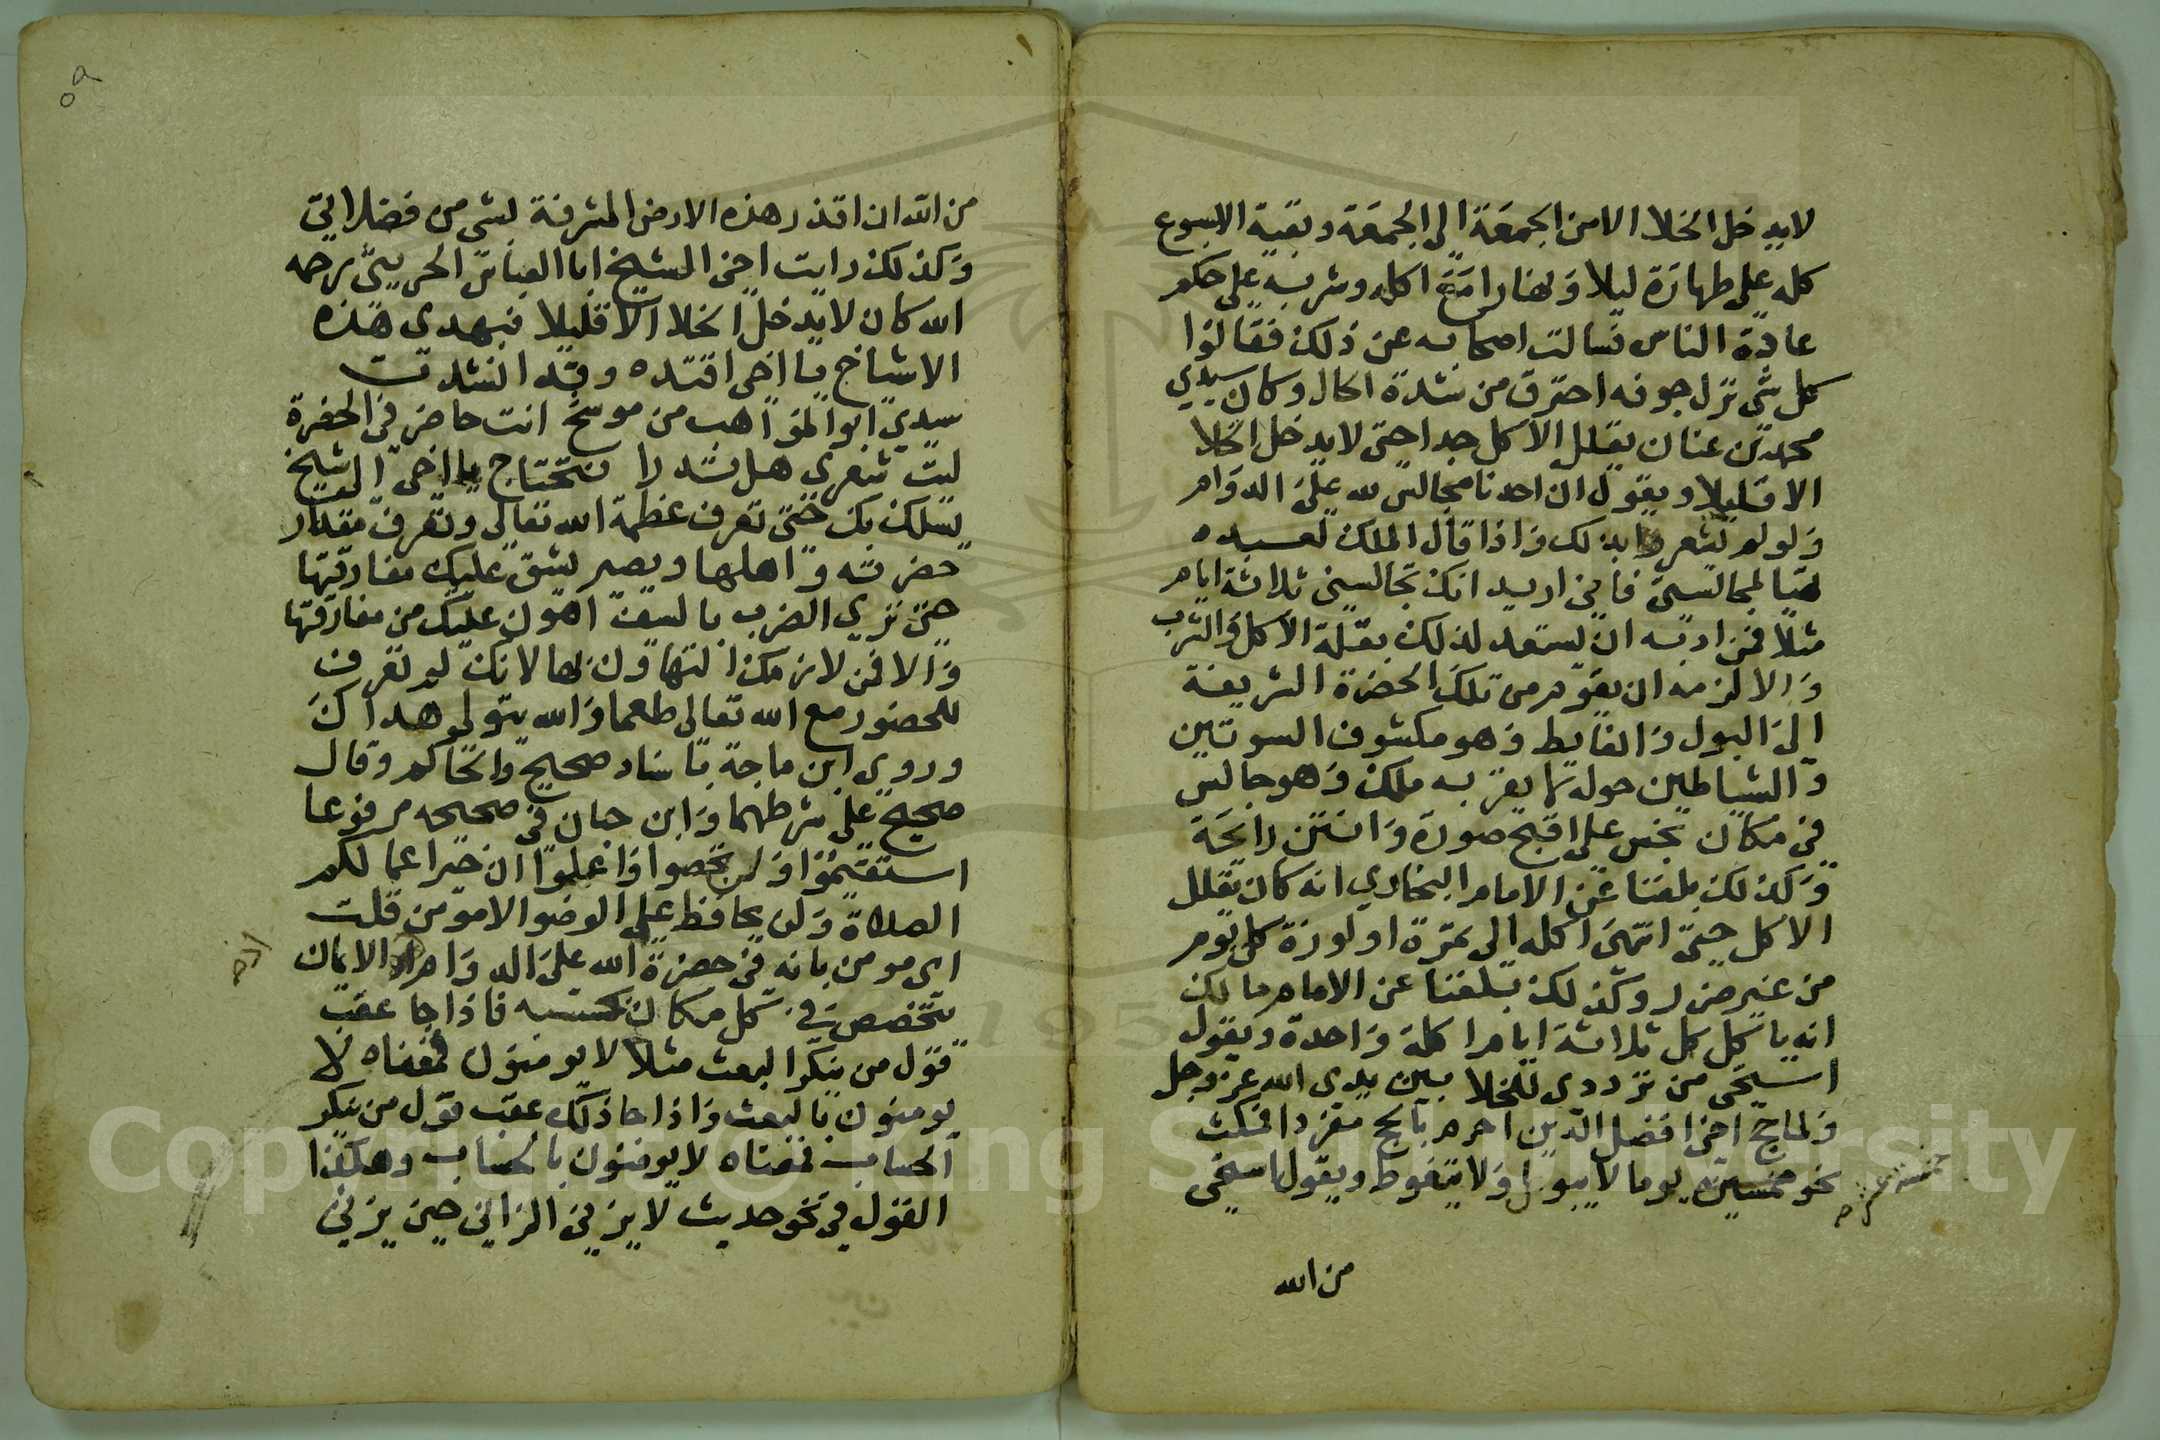 لا يدخل الخلا الا من الجمعة الى الجمعة وبقية الاسبوع
كله على طهارة ليلا ونهارا مع اكله وشربه على حكم
عادة الناس فسالت اصحابه عن ذلك فقالوا
كل شى نزل جوفه احترق من شدة الحال وكان سيدي
محمد بن عنان يقلل الاكل جدا حتى لا يدخل الخلا
الا قليلا ويقول ان احدنا مجالس لله على الدوام
ولو لم يشعر بذلك واذا قال الملك لعبده
هيا لمجالستي فانى اريد انك تجالسنى ثلاثة ايام
مثلا فمن ادبه ان يستعد لذلك بقلة الاكل والشرب
والا لزمه ان يقوم من تلك الحضرة الشريفة
الى البول والغايط وهو مكشوف السوتين
والشياطين حوله لا يقربه ملك وهو جالس
في مكان نجس على اقبح صورة وانتن رايحة
وكذلك بلغنا عن الامام البخاري انه كان يقلل
الاكل حتى انتهى اكله الى تمرة او لوزة كل يوم
من غير ضرر وكذلك بلغنا عن الامام مالك
انه ياكل كل ثلاثة ايام اكلة واحدة ويقول
استحى من ترددى للخلا بين يدى الله عز وجل
ولما حج اخى افضل الدين احرم بالحج مفردا فمكث
نحو خمسين يوما لا يبول ولا يتغوط ويقول استحى
خمسة عشر صح
من الله
٥٩
من الله ان اقذر هذه الارض المشرفة بشى من فضلاتي
وكذلك رايت اخى الشيخ ابا العباس الحريثى رحمه
الله كان لا يدخل الخلا الا قليلا فبهدى هذه
الاشياخ يا اخى اقتده وقد انشدت
سيدي ابو المواهب من موشح انت حاضر في الحضرة
ليت شعري هل تدرا فتحتاج يا اخى الى شيخ
يسلك بك حتى تعرف عظمة الله تعالى وتعرف مقدار
حضرته واهلها ويصير يشق عليك مفارقتها
حتى ترى الضرب بالسيف اهون عليك من مفارقتها
والا فمن لازمك التهاون بها لانك لم تعرف
للحضور مع الله تعالى طعما والله يتولى هداك
وروى ابن ماجة باسناد صحيح والحاكم وقال
صحيح على شرطهما وابن حبان في صحيحه مرفوعا
استقيموا ولن تحصوا واعلموا ان خير اعمالكم
الصلاة ولن يحافظ على الوضو الا مومن قلت
اى مومن بانه في حضرة الله على الدوام الايمان
اذ صح
يتخصص في كل مكان بحسبه فاذا جا عقب
قول من ينكر البعث مثلا لا يومنون فمعناه لا
يومنون بالبعث واذا جا ذلك عقب قول من ينكر
الحساب فمعناه لا يومنون بالحساب وهكذا
القول في نحو حديث لا يزنى الزانى حين يزني
Copyright © King Saud University